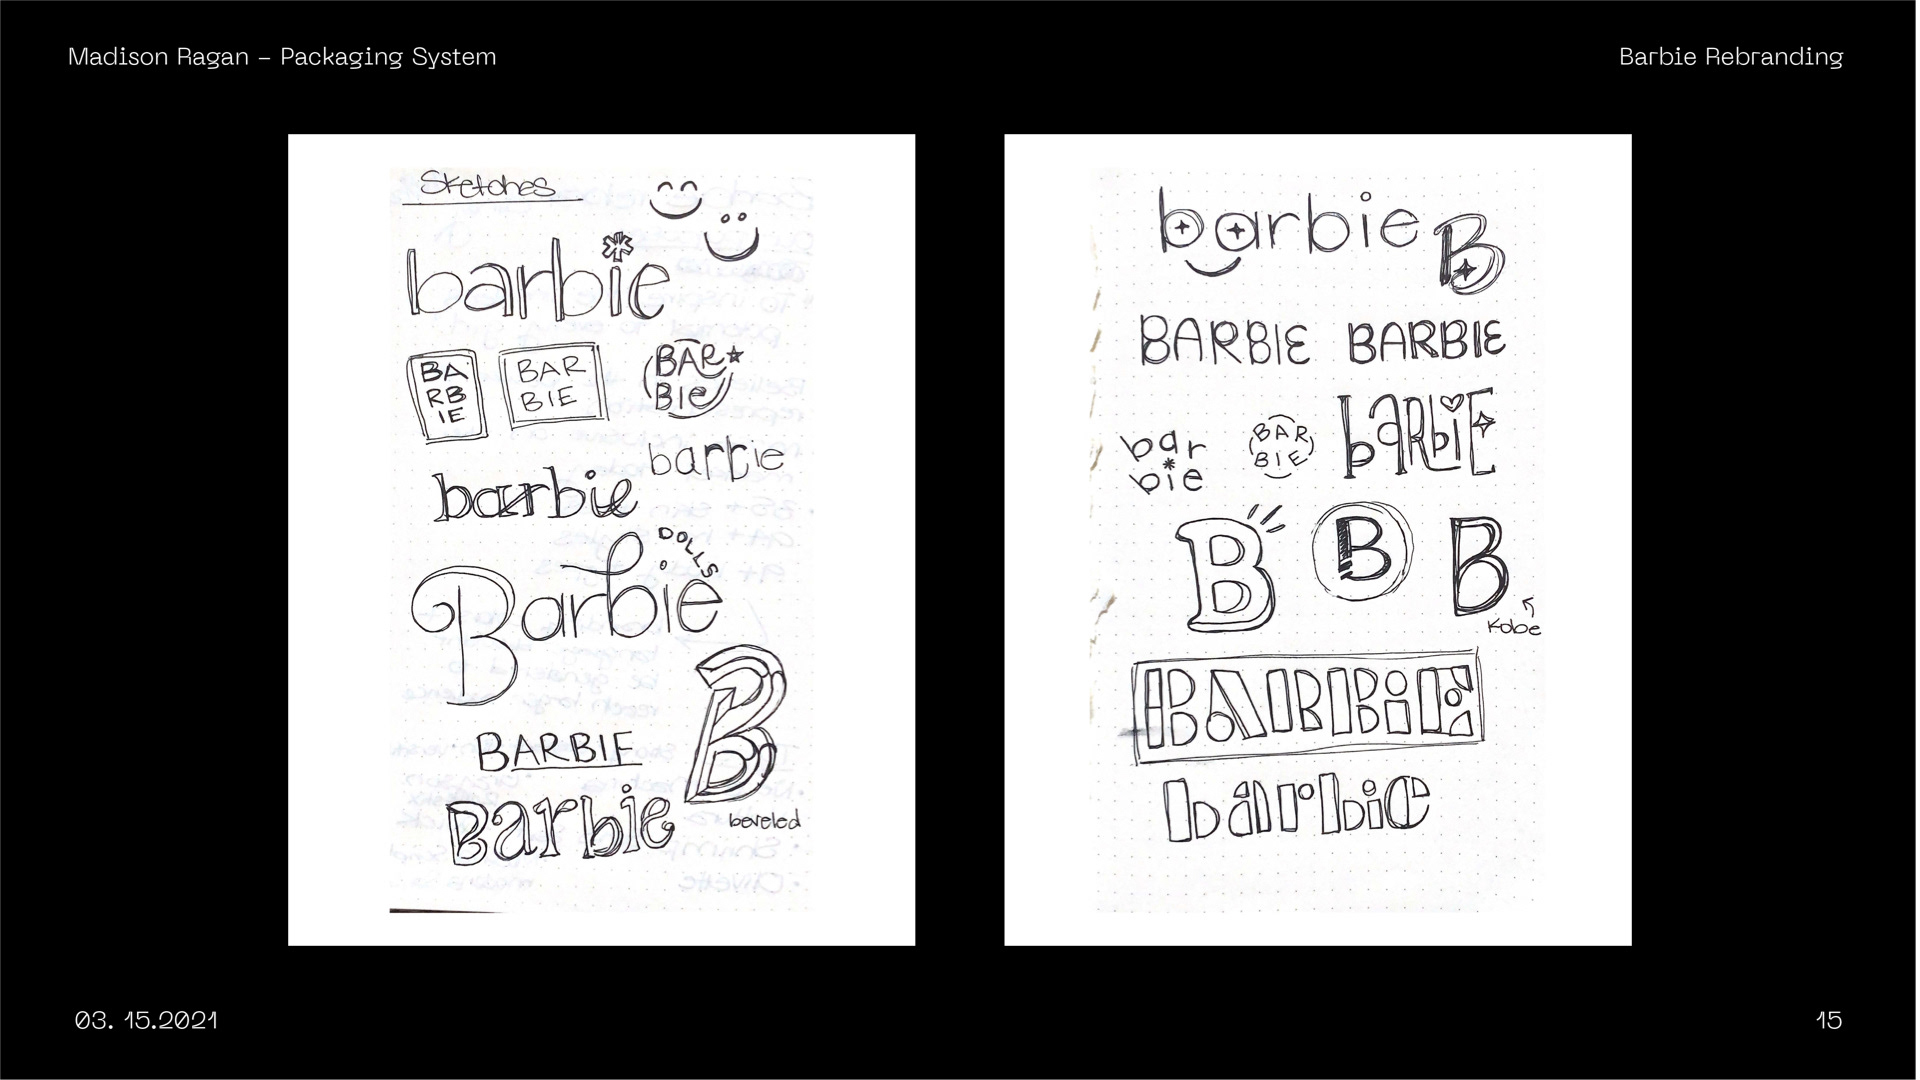 Madison Ragan – Packaging System
Barbie Rebranding
Sketches
barbie
BA
RB
IE
BAR
BIE
BAR
BIE
barbie
barbie
DOLLS
Barbie
B
BARBIE
Barbie
beveled
barbie
B
BARBIE BARBIE
bar
bie
BAR
BIE
barbiE
B B B
Kobe
BARBiE
barbie
03. 15.2021
15